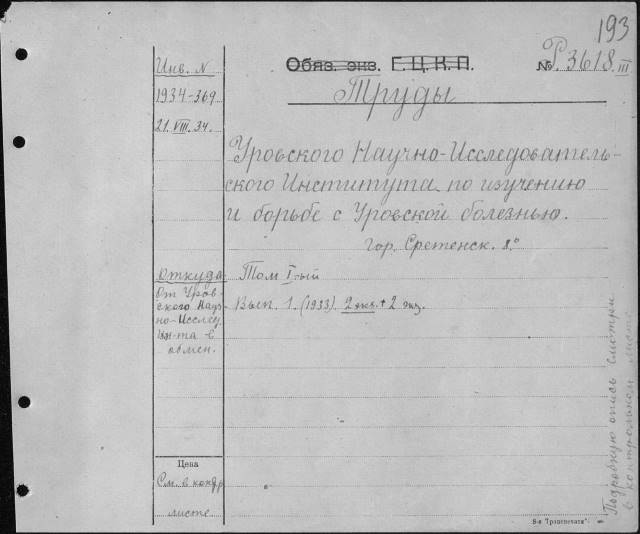 193
Обяз. экз. Г.Ц.К.П.
№ P.3618 III
Труды
Инв. N
1934-369
21. VIII. 34.
Уровского Научно-Исследователь-
ского Института по изучению
и борьбе с Уровской болезнью.
гор. Сретенск. 8°
Откуда
От Уров-
ского Науч-
но-Исслед
Ин-та в
обмен.
Том I-ый
Вып. 1. (1933). 2 экз. + 2 экз.
Цена
См. в контр
листе
Подробную опись смотри
в контрольном листе
8-я "Транспечати"